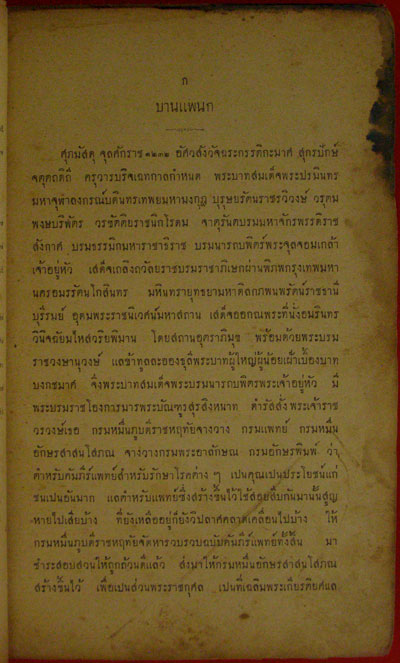 ก
บานแพนก
ศุภมัสดุ จุลศักราช ๑๒๓๒ อัศวสังวัจฉระกรรติกะมาศ สุกรปักษ์
จตุตถดิถี ครุวารปริจเฉทกาลกำหนด พระบาทสมเด็จพระปรมินทร
มหาจุฬาลงกรณ์บดินทรเทพยมหามงกุฎ บุรุษยรัตนราชรวิวงษ์ วรุตม
พงษบริพัตร วรขัติยราชนิกโรดม จาตุรันตบรมมหาจักรพรรดิราช
สังกาศ บรมธรรมิกมหาราชาธิราช บรมนารถบพิตร์พระจุลจอมเกล้า
เจ้าอยู่หัว เสด็จเถลิงถวัลยราชบรมราชาภิเษกผ่านพิภพกรุงเทพมหา
นครอมรรัตนโกสินทร มหินทรายุทธยามหาดิลกภพนพรัตน์ราชธานี
บุรีรมย์ อุดมพระราชนิเวศน์มหาสถาน เสด็จออกณพระที่นั่งอมรินทร
วินิจฉัยมไหสวริยพิมาน โดยสถานอุตราภิมุข พร้อมด้วยพระบรม
ราชวงษานุวงษ์ แลข้าทูลลอองธุลีพระบาทผู้ใหญ่ผู้น้อยเฝ้าเบื้องบาท
บงกชมาศ จึ่งพระบาทสมเด็จพระบรมนารถบพิตรพระเจ้าอยู่หัว มี
พระบรมราชโองการมานพระบัณฑูรสุรสิงหนาท ดำรัสสั่งพระเจ้าราช
วรวงษ์เธอ กรมหมื่นภูบดีราชหฤทัยจางวาง กรมแพทย์ กรมหมื่น
อักษรสาสนโสภณ จางวางกรมพระอาลักษณ กรมอักษรพิมพ์ ว่า
ตำหรับคัมภีร์แพทย์สำหรับรักษาโรคต่าง ๆ เปนคุณเปนประโยชน์แก่
ชนเปนอันมาก แลตำหรับแพทย์ซึ่งสร้างขึ้นไว้ใช้สอยสืบกันมานั้นสูญ
หายไปเสียบ้าง ที่ยังเหลืออยู่ก็ยังวิปลาศคลาดเคลื่อนไปบ้าง ให้
กรมหมื่นภูบดีราชหฤทัยจัดหารวบรวมฉบับคัมภีร์แพทย์ทั้งสิ้น มา
ชำระสอบสวนให้ถูกถ้วนดีแล้ว ส่งมาให้กรมหมื่นอักษรสาสนโสภณ
สร้างขึ้นไว้ เพื่อเปนส่วนพระราชกุศล เปนที่เฉลิมพระเกียรติยศแล